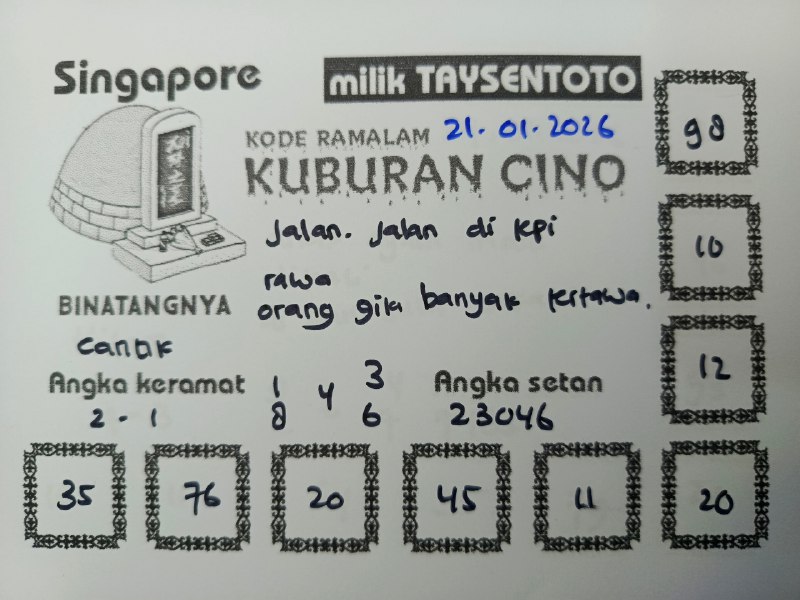 Singapore
milik TAYSENTOTO
KODE RAMALAM 21.01.2026
KUBURAN CINO
98
Jalan. Jalan di tepi
rawa
10
orang gila banyak tertawa.
BINATANGNYA
12
Angka keramat
2 - 1
1 4 3
8 6
Angka setan
23046
35 76 20 45 11 20